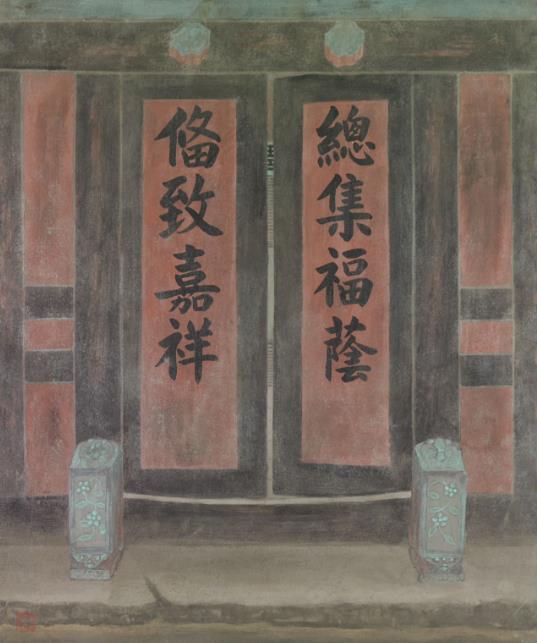 總集福蔭
俻致嘉祥